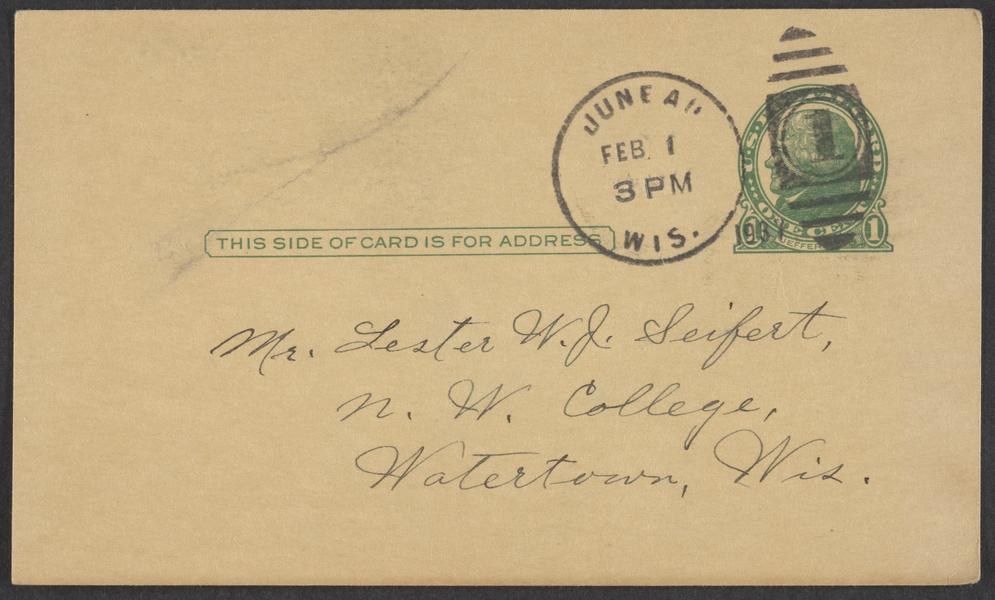 JUNEAU
FEB. 1
3 PM
WIS.
1
U.S.
1 JEFFER 1
THIS SIDE OF CARD IS FOR ADDRESS
Mr. Lester W.J. Seifert,
N. W. College,
Watertown, Wis.